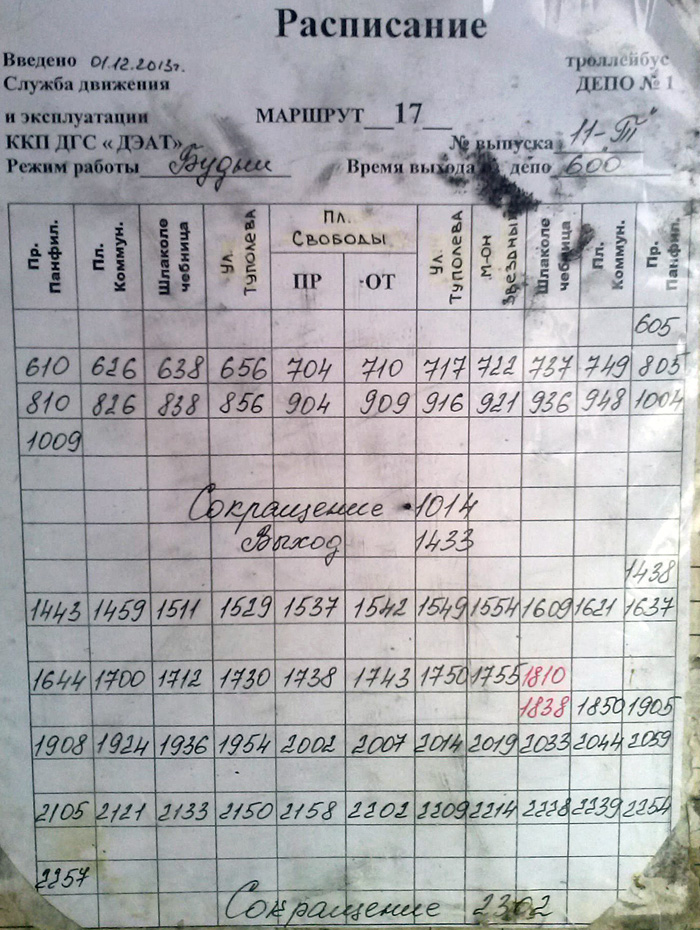 Расписание
Введено 01.12.2013г. троллейбус
Служба движения ДЕПО № 1
и эксплуатации МАРШРУТ 17
ККП ДГС « ДЭАТ» № выпуска 11-П"
Режим работы Будни Время выхода из депо 600
Пр. Панфил. Пл. Коммун. Шлаколе чебница Ул Туполева Пл. Свободы Ул Туполева М-он Звездный Шлаколе чебница Пл. Коммун. Пр. Панфил.
ПР ОТ
605
610 626 638 656 704 710 717 722 737 749 805
810 826 838 856 904 909 916 921 936 948 1004
1009
Сокращение 1014
Выход 1433
1438
1443 1459 1511 1529 1537 1542 1549 1554 1609 1621 1637
1644 1700 1712 1730 1738 1743 1750 1755 1810
1838 1850 1905
1908 1924 1936 1954 2002 2007 2014 2019 2033 2044 2059
2105 2121 2133 2150 2158 2202 2209 2214 2228 2239 2254
2257
Сокращение 2302